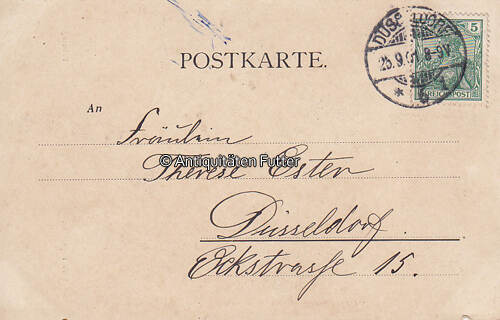 POSTKARTE.
DÜSSELDORF
25.9.01. 8-9V.
* 1
5
REICHSPOST
An
Fräulein
© Antiquitäten Futter
Therese Ester
Düsseldorf.
Eckstrasse 15.